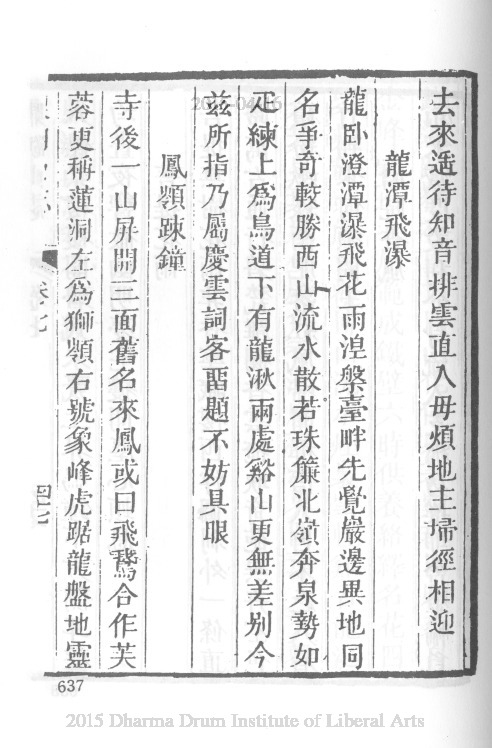 去來遥待知音排雲直入毋煩地主埽徑相迎
龍潭飛瀑
龍卧澄潭瀑飛花雨湼槃臺畔先覺巖邊異地同
名爭奇較勝西山流水散若珠簾北嶺奔泉勢如
疋練上爲鳥道下有龍湫兩處谿山更無差别今
兹所指乃屬慶雲詞客畱題不妨具眼
鳳嶺踈鐘
寺後一山屏開三面舊名來鳳或曰飛鵞合作芙
蓉更稱蓮洞左爲獅嶺右號象峰虎踞龍盤地靈
卷七
四七
637
2015 Dharma Drum Institute of Liberal Arts